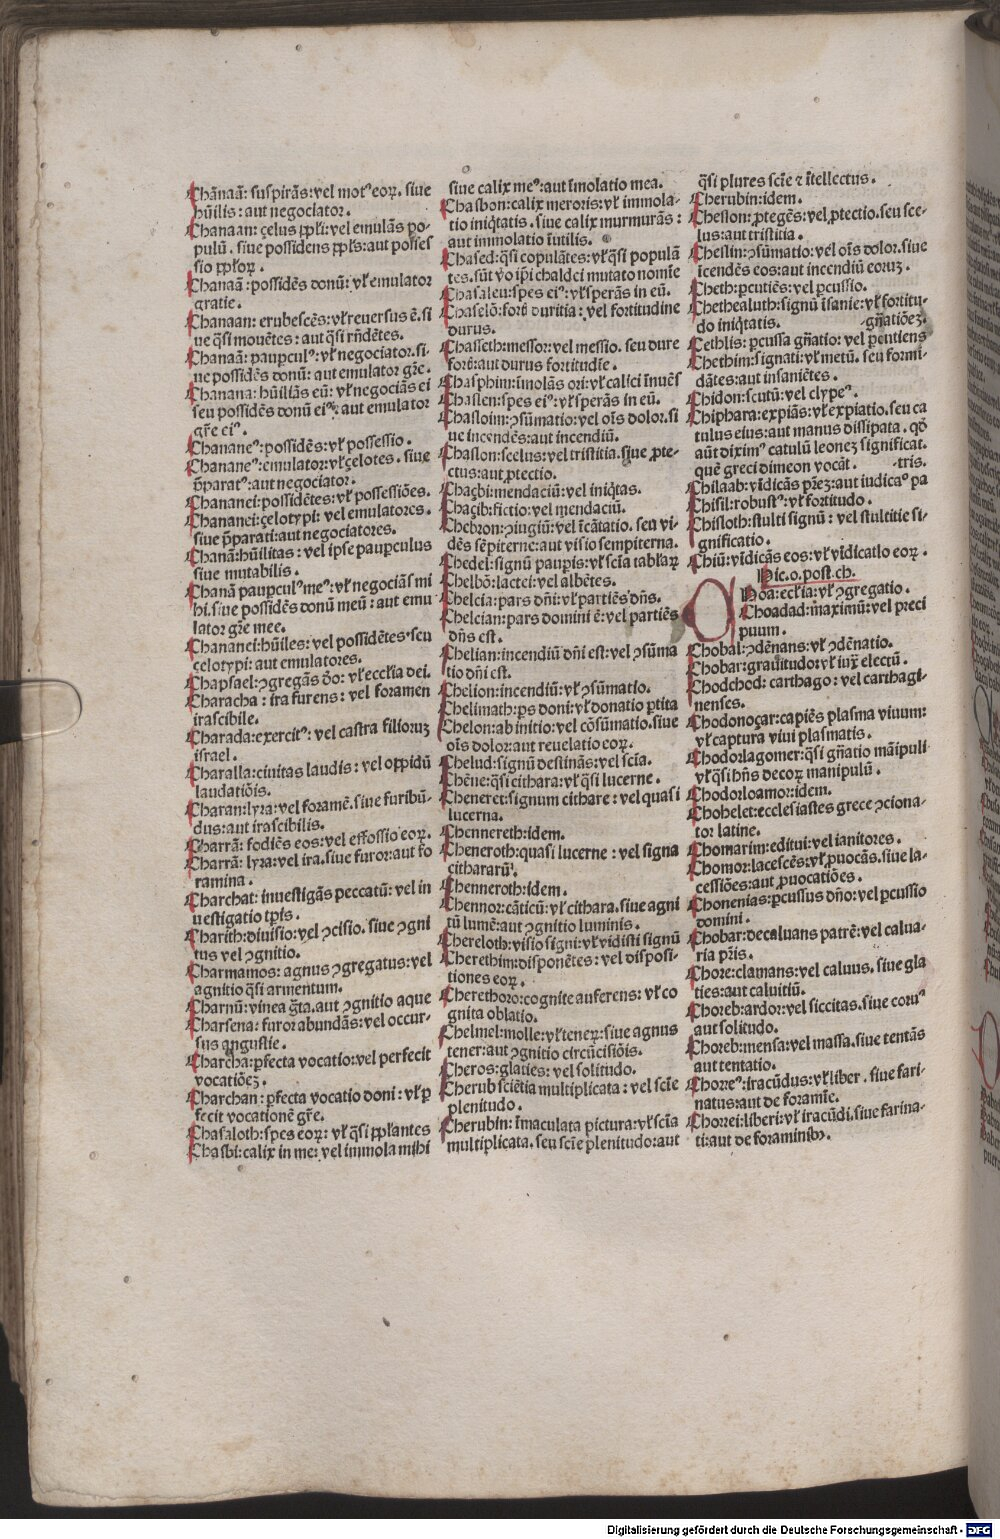 Chānaā: suspirās: vel motꝰ eoꝝ. siue
hūilis: aut negociator.
Chanaam: çelus ppl̄i: vel emulās po-
pulū. siue possidens pplꝫ: aut posses
sio pploꝝ.
Chanaā: possidēs donū: vl̓ emulator
gratie.
Chanaan: erubescēs: vl̓ reuersus ē. si
ue qͥsi mouētes: aut qͥsi rn̄dētes.
Chanaā: paupculꝰ: vl̓ negociator. si-
ue possidēs donū: aut emulator gr̄e.
Chanana: hūiliās eū: vl̓ negociās ei
seu possidēs donū eiꝰ: aut emulator
gr̄e eiꝰ.
Chananeꝰ: possidēs: vl̓ possessio.
Chananeꝰ: emulator: vl̓ çelotes. siue
p̄paratꝰ: aut negociator.
Chananei: possidētes: vl̓ possessiōes.
Chananei: çelotypi: vel emulatores.
siue p̄parati: aut negociatores.
Chanā: hūilitas: vel ipse paupculus
siue mutabilis.
Chanā paupculꝰ meꝰ: vl̓ negociās mi
hi. siue possidēs donū meū: aut emu
lator gr̄e mee.
Chananei: hūiles: vel possidētes. seu
çelotypi: aut emulatores.
Chapsael: ꝯgregās ðo: vl̓ eccl̄ia dei.
Characha: ira furens: vel foramen
irascibile.
Charada: exercitꝰ: vel castra filioruꝫ
israel.
Charalla: ciuitas laudis: vel oppidū
laudatiōis.
Charan: lyra: vel foramē. siue furibū-
dus: aut irascibilis.
Charrā: fodiēs eos: vel effossio eoꝝ.
Charrā: lyra: vel ira. siue furor: aut fo
ramina.
Charchat: inuestigās peccatū: vel in
uestigatio tp̄is.
Charith: diuisio: vel ꝯcisio. siue ꝯgni
tus vel ꝯgnitio.
Charmamos: agnus ꝯgregatus: vel
agnitio qͥsi armentum.
Charnū: vinea gr̄ta. aut ꝯgnitio aque
Charsena: furor abundās: vel occur-
sus angustie.
Charcha: ꝑfecta vocatio: vel perfecit
vocatiōeꝫ.
Charchan: ꝑfecta vocatio doni: vl̓ ꝑ
fecit vocationē gr̄e.
Chasaloth: spes eoꝝ: vl̓ qͥsi ppl̄antes
Chasbi: calix in me: vel immola mihi
siue calix meꝰ: aut īmolatio mea.
Chasbon: calix meroris: vl̓ immola-
tio iniqͥtatis. siue calix murmurās:
aut immolatio īutilis.
Chased: qͥsi copulātes: vl̓ qͥsi populā
tes. sūt v̓o ip̄i chaldei mutato nomīe
Chasaleu: spes eiꝰ: vl̓ sperās in eū.
Chaselō: forū duritia: vel fortitudine
durus.
Chasseth: messor: vel messio. seu dure
forū: aut durus fortitudīe.
Chasphim: īmolās ori: vl̓ calici īnuēs
Chaslen: spes eiꝰ: vl̓ sperās in eū.
Chasloim: ꝯsūmatio: vel oīs dolor. si
ue incendēs: aut incendiū.
Chaslon: scelus: vel tristitia. siue ꝓte-
ctus: aut ꝓtectio.
Chaçbi: mendaciū: vel iniqͥtas.
Chaçib: fictio: vel mendaciū.
Chebron: ꝯiugiū: vel īcātatio. seu vi-
dēs sēpiterne: aut visio sempiterna.
Chedel: signū paupis: vl̓ scīa tabl̄aꝝ
Chelbō: lactei: vel albētes.
Chelcia: pars dn̄i: vl̓ partiēs dn̄s.
Chelcian: pars domini ē: vel partiēs
dn̄s est.
Chelian: incendiū dn̄i est: vel ꝯsūma
tio dn̄i est.
Chelion: incendiū: vl̓ ꝯsūmatio.
Chelimath: ꝑs doni: vl̓ donatio ꝑtita
Chelon: ab initio: vel cōsūmatio. siue
oīs dolor: aut reuelatio eoꝝ.
Chelud: signū destinās: vel scīa.
Chēne: qͥsi cithara: vl̓ qͥsi lucerne.
Cheneret: signum cithare: vel quasi
lucerna.
Chennereth: idem.
Cheneroth: quasi lucerne: vel signa
cithararū.
Chenneroth: idem.
Chennor: cāticū: vl̓ cithara. siue agni
tū lumē: aut ꝯgnitio luminis.
Chereloth: visio signi: vl̓ vidisti signū
Cherethim: disponētes: vel disposi-
tiones eoꝝ.
Cherethoro: cognite auferens: vl̓ co
gnita oblatio.
Chelmel: molle: vl̓ teneꝝ: siue agnus
tener: aut ꝯgnitio circūcisiōis.
Cheros: glaties: vel solitudo.
Cherub sciētia multiplicata: vel scīe
plenitudo.
Cherubin: īmaculata pictura: vl̓ scīa
multiplicata. seu scīe plenitudo: aut
qͥsi plures scīe ⁊ ītellectus.
Cherubin: idem.
Cheslon: ꝓtegēs: vel ꝓtectio. seu sce-
lus: aut tristitia.
Cheslin: ꝯsūmatio: vel oīs dolor. siue
īcendēs eos: aut incendiū eoruꝫ.
Cheth: ꝑcutiēs: vel ꝑcussio.
Chethealuth: signū īsanie: vl̓ fortitu-
do iniqͥtatis. gn̄atiōeꝫ.
Cethlis: ꝑcussa gn̄atio: vel ꝑcutiens
Chethim: signati: vl̓ metū. seu formi-
dātes: aut insaniētes.
Chidon: scutū: vel clypeꝰ.
Chiphara: expiās: vl̓ expiatio. seu ca
tulus eius: aut manus dissipata. qð
aūt diximꝰ catulū leoneꝫ significat.
quē greci dimeon vocāt. tris.
Chilaab: vīdicās pr̄eꝫ: aut iudicaꝰ pa
Chisil: robustꝰ: vl̓ fortitudo.
Chisloth: stulti signū: vel stultitie si-
gnificatio.
Chiū: vīdicās eos: vl̓ vīdicatio eoꝝ.
Hic. o. post. ch.
Hoa: eccl̄ia: vl̓ ꝯgregatio.
Choadad: maximū: vel preci
puum.
Chobal: ꝯdēnans: vl̓ ꝯdēnatio.
Chobar: grauitudo: vl̓ iuꝝ electū.
Chodchod: carthago: vel carthagi-
nenses.
Chodonoçar: capiēs plasma viuum:
vl̓ captura viui plasmatis.
Chodorlagomer: qͥsi gn̄atio māipuli
vl̓ qͥsi hn̄s decoꝝ manipulū.
Chodorloamor: idem.
Chohelet: ecclesiastes grece ꝯciona-
tor latine.
Chomarim: editui: vel ianitores.
Chomor: lacescēs: vl̓ ꝓuocās. siue la-
cessiōes: aut ꝓuocatiōes.
Chonenias: ꝑcussus dn̄o: vel ꝑcussio
domini.
Chobar: decaluans patrē: vel calua-
ria pr̄is.
Chore: clamans: vel caluus. siue gla
ties: aut caluitiū.
Choreb: ardor: vel siccitas. siue coruꝰ
aut solitudo.
Choreb: mensa: vel massa. siue tentās
aut tentatio.
Chorreꝰ: iracūdus: vl̓ liber. siue fari-
natus: aut de foramīe.
Chorrei: liberi: vl̓ iracūdi. siue farina-
ti: aut de foraminibꝫ.
Digitalisierung gefördert durch die Deutsche Forschungsgemeinschaft - DFG